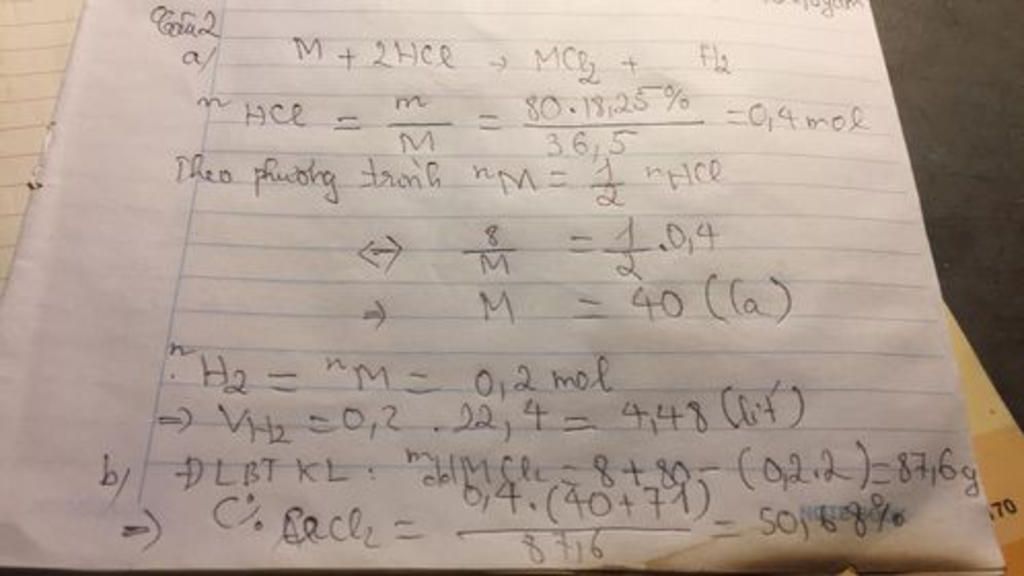 Câu 2
a) M + 2HCl → MCl2 + H2
nHCl = m/M = 80.18,25%/36,5 = 0,4 mol
Theo phương trình nM = 1/2 nHCl
<=> 8/M = 1/2 . 0,4
=> M = 40 (Ca)
nH2 = nM = 0,2 mol
=> VH2 = 0,2 . 22,4 = 4,48 (lít)
b) ĐLBTKL : mddMCl2 = 8 + 80 - (0,2.2) = 87,6 g
=> C% CaCl2 = 0,4.(40+71)/87,6 = 50,68%
70